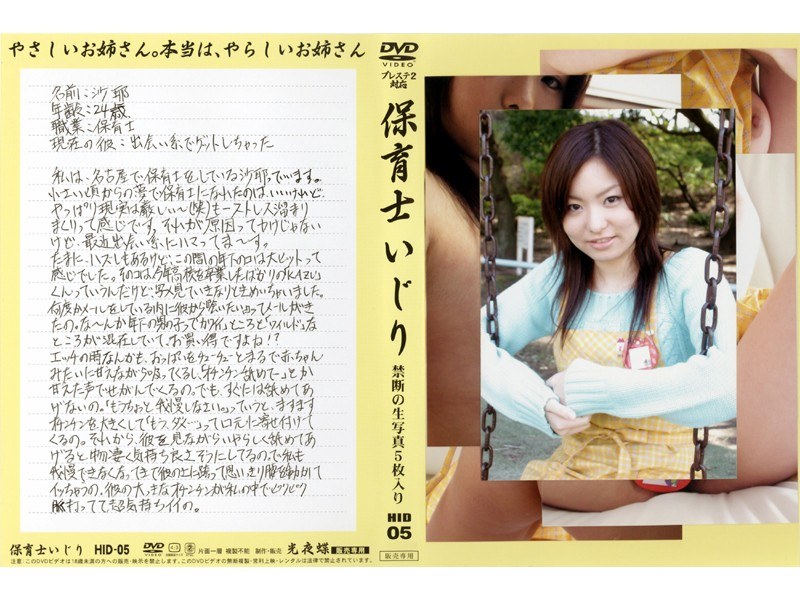 やさしいお姉さん。本当は、やらしいお姉さん
名前:沙耶
年齢:24歳
職業:保育士
現在の彼:出会い系でゲットしちゃった
私は、名古屋で保育士をしている沙耶っていいます。
小さい頃からの夢で保育士になれたのは、いいけれど、
やっぱり現実は厳しい〜(笑)もーストレス溜まり
まくりって感じです。それが原因ってわけじゃない
けど、最近出会い系にハマってま〜す。
たまに、ハズレもあるけど、この間の年下のコは大ヒットって
感じでした。そのコは今年高校を卒業したばかりの
くんっていうんだけど、写メ見ていきなりときめいちゃいました。
何度かメールをしている内に彼から会いたいってメールがき
たの。な〜んか年下の男の子って「カワイイ」ところと「ワイルド」な
ところが混在していて、お買い得ですよね!?
エッチの時なんかも、おっぱいをチューチューとまるで赤ちゃん
みたいに甘えながら吸ってくるし、「オチンチン舐めて〜」とか
甘えた声でせがんでくるの。でも、すぐには舐めてあ
げないの。「もうちょっと我慢しなさい。」っていうと、ますます
オチンチンを大きくして「もう、ダメ…」って口元に寄せ付けて
くるの。それから、彼を見ながらいやらしく舐めてあ
げると物凄く気持ち良さそうにしてるので、私も
我慢できなくなってきて彼の上に跨って思いっきり腰を動かして
イッちゃうの。彼の大っきなオチンチンが私の中でビクビク
脈打ってて超気持ちイイの。
保育士いじり HID-05 DVD VIDEO 片面一層 複製不能 制作・販売 光夜蝶 販売専用
注意:このDVDビデオは18歳未満の方への販売・映示を禁止します。このDVDビデオの無断複製・営利上映・レンタルは法律で禁止されています。
DVD
VIDEO
プレステ2
対応
保育士いじり
禁断の生写真5枚入り
HID
05
販売専用